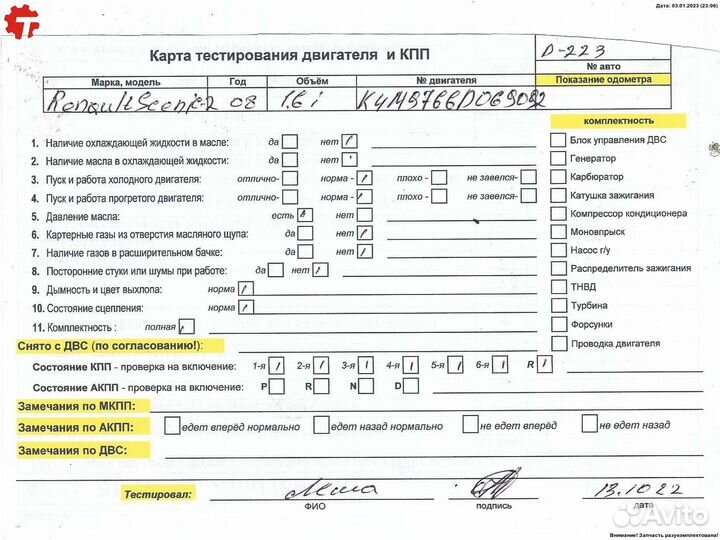 Дата: 03.01.2023 (23:06)
Карта тестирования двигателя и КПП
D-223
№ авто
Марка, модель Год Объём № двигателя Показание одометра
Renault Scenic-2 08 1.6 i K4M9766D069092
комплектность
1. Наличие охлаждающей жидкости в масле: да нет
Блок управления ДВС
2. Наличие масла в охлаждающей жидкости: да нет
Генератор
3. Пуск и работа холодного двигателя: отлично- норма - плохо - не завелся-
Карбюратор
4. Пуск и работа прогретого двигателя: отлично- норма - плохо - не завелся-
Катушка зажигания
5. Давление масла: есть нет
Компрессор кондиционера
6. Картерные газы из отверстия масляного щупа: да нет
Моновпрыск
7. Наличие газов в расширительном бачке: да нет
Насос г/у
8. Посторонние стуки или шумы при работе: да нет
Распределитель зажигания
9. Дымность и цвет выхлопа: норма
ТНВД
10. Состояние сцепления: норма
Турбина
11. Комплектность : полная
Форсунки
Снято с ДВС (по согласованию!):
Проводка двигателя
Состояние КПП - проверка на включение: 1-я 2-я 3-я 4-я 5-я 6-я R
Состояние АКПП - проверка на включение: P R N D
Замечания по МКПП:
Замечания по АКПП: едет вперёд нормально едет назад нормально не едет вперёд не едет назад
Замечания по ДВС:
Тестировал: 13.10.22
ФИО подпись дата
Avito
Внимание! Запчасть разукомплектована!